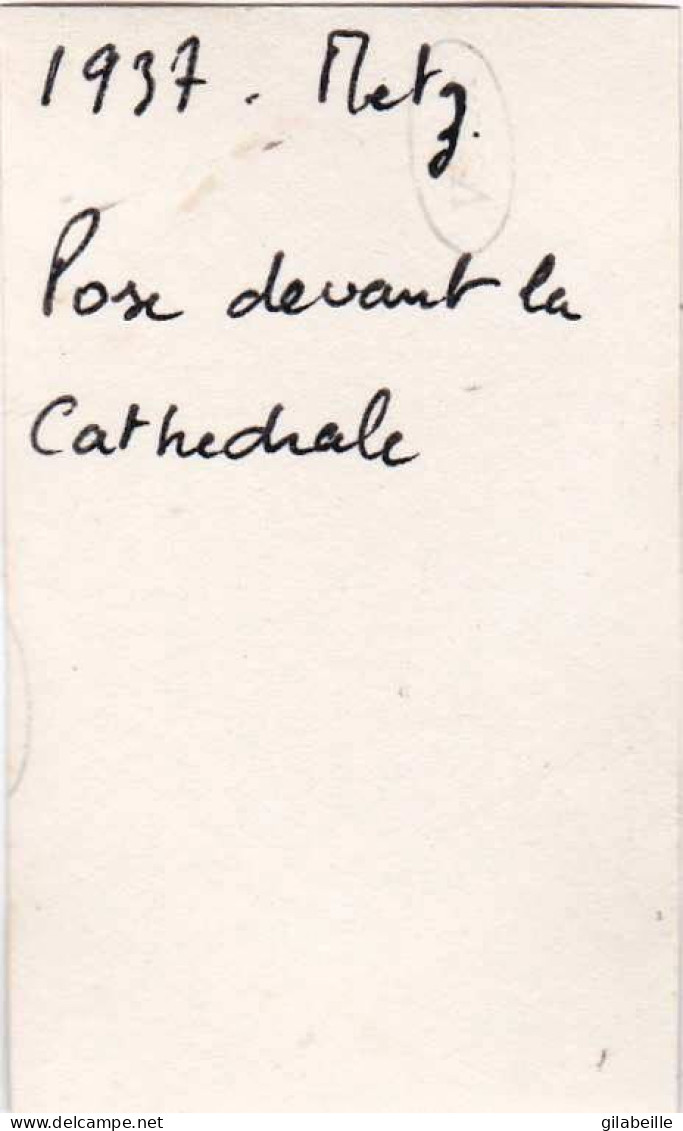 1937. Metz.
Pose devant la
Cathedrale
delcampe.net
gilabeille